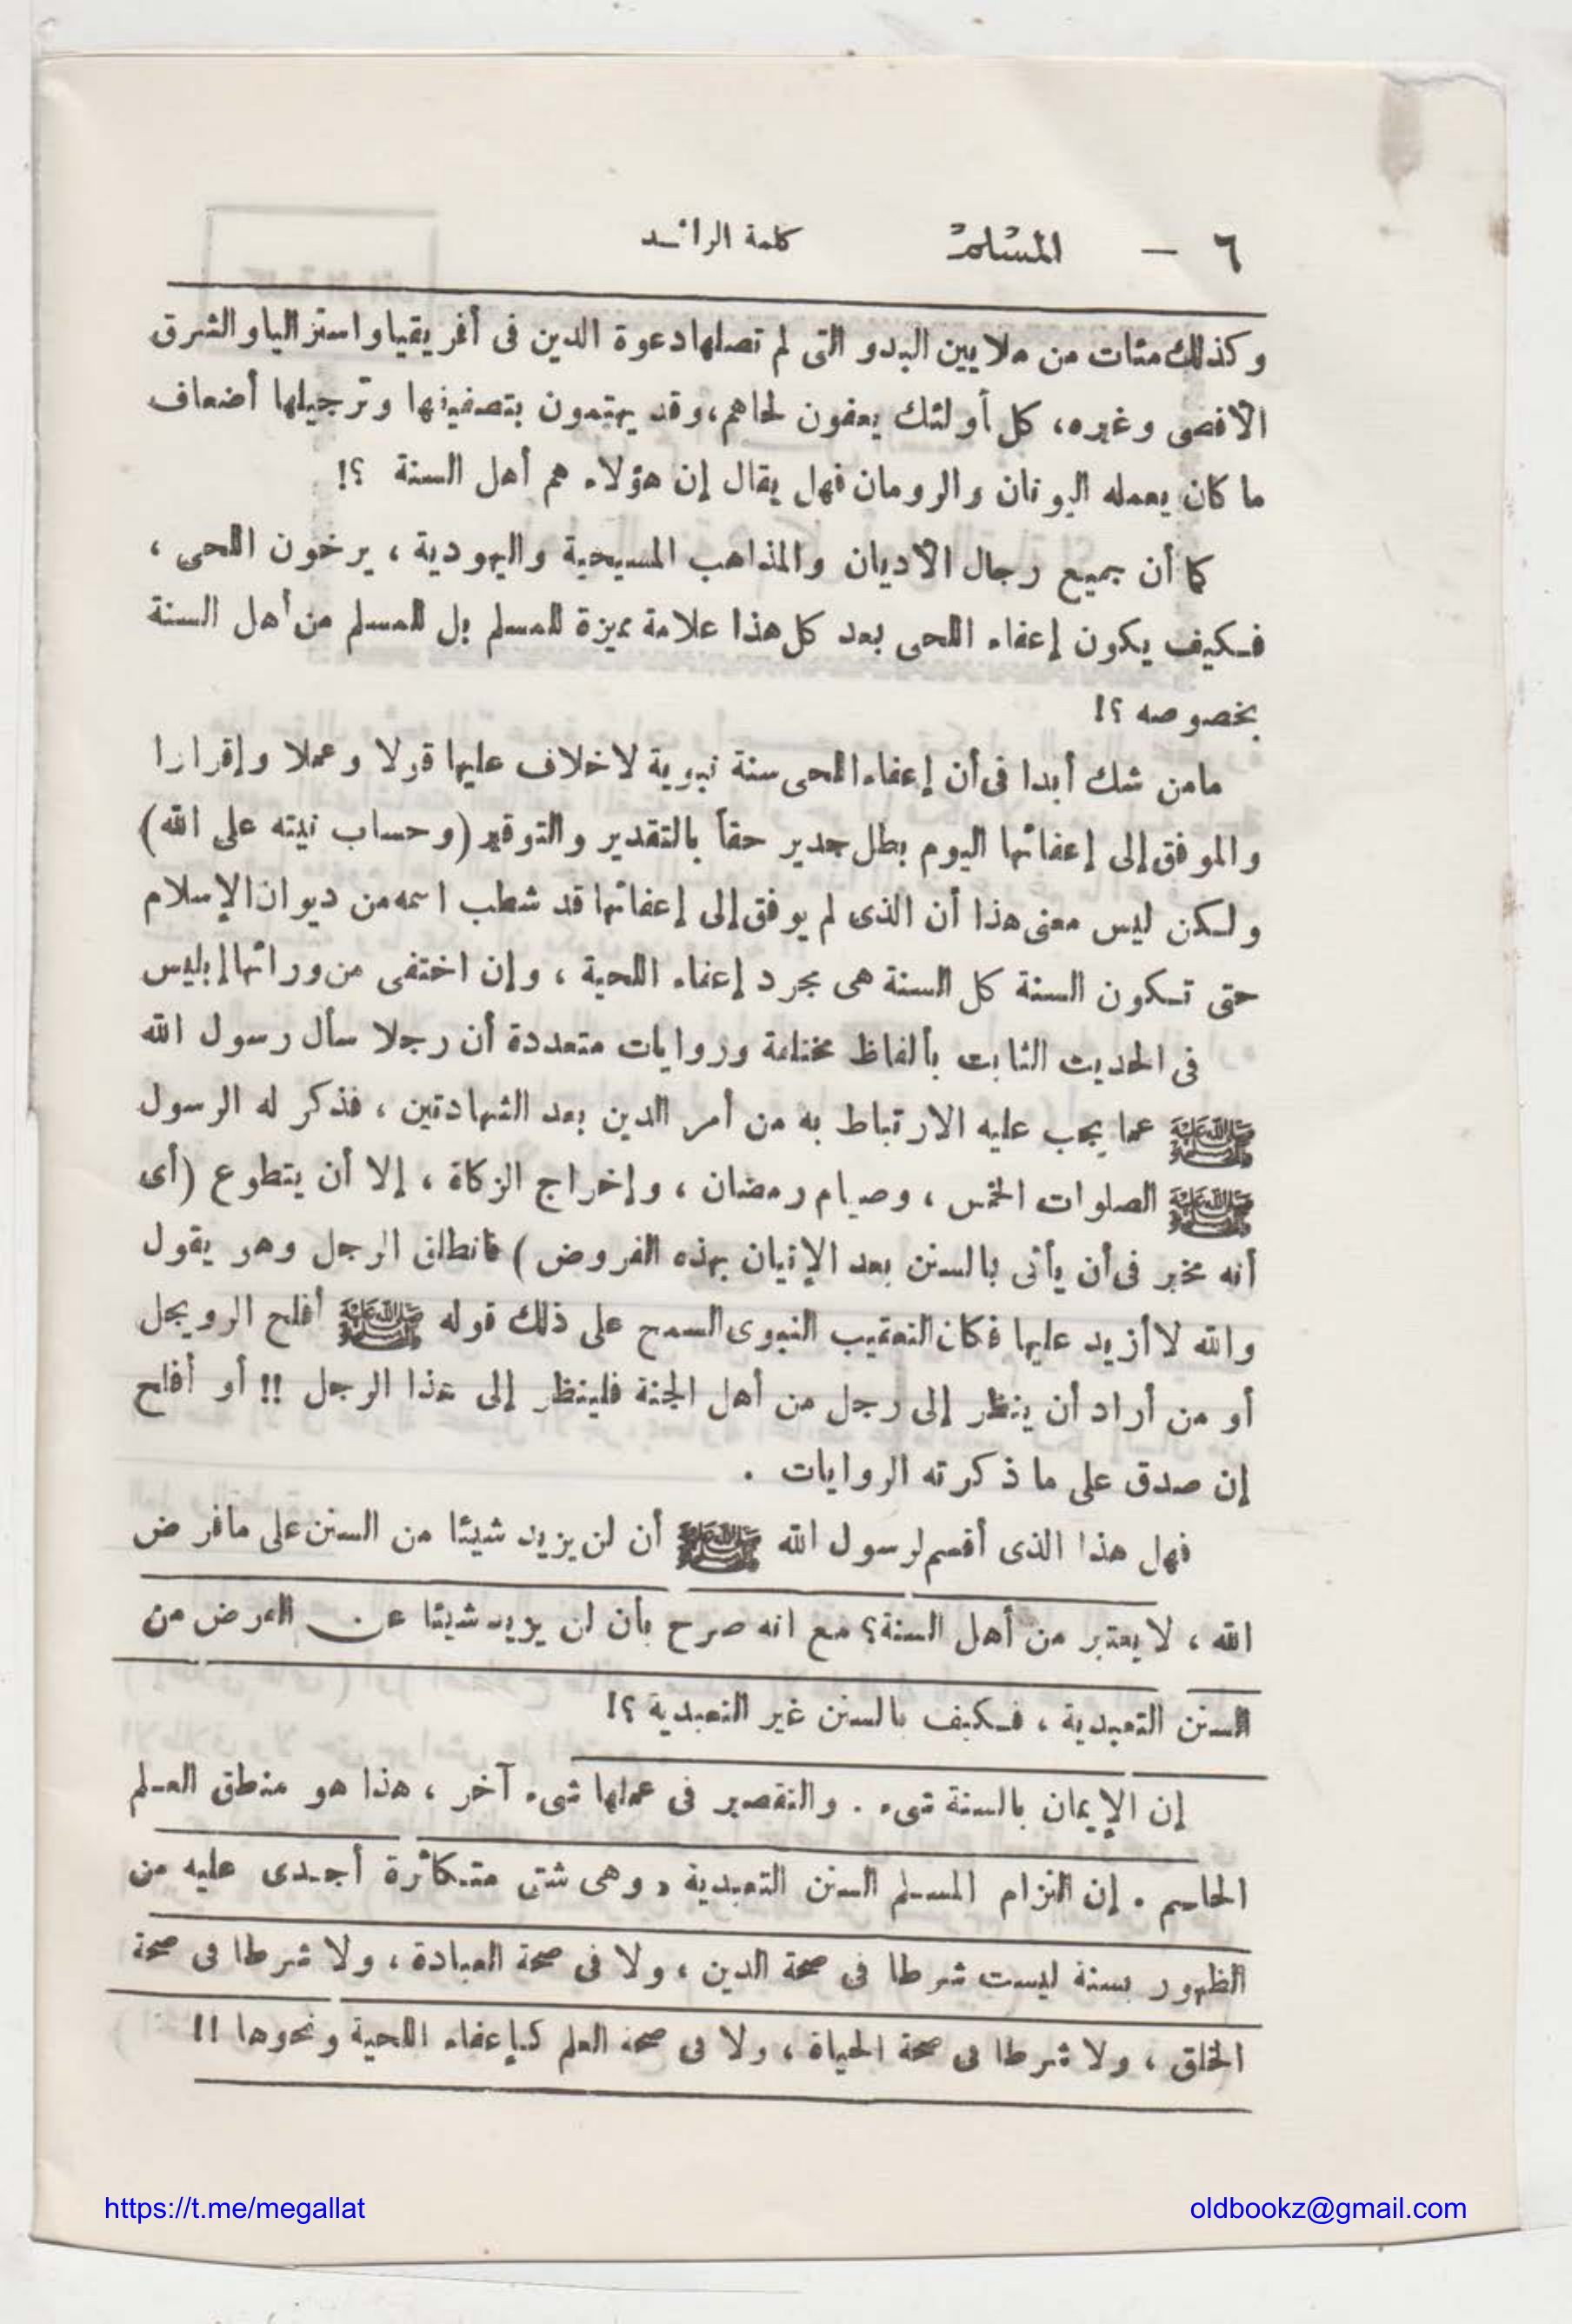 ٦ — المسلم كلمة الرائد
وكذلك مئات من ملايين البدو التى لم تصلها دعوة الدين فى أفريقيا واستراليا والشرق
الأقصى وغيره، كل أولئك يعفون لحاهم، وقد يهتمون بتصفيفها وترجيلها أضعاف
ما كان يعمله اليونان والرومان فهل يقال إن هؤلاء هم أهل السنة ؟!
كما أن جميع رجال الأديان والمذاهب المسيحية واليهودية ، يرخون اللحى ،
فكيف يكون إعفاء اللحى بعد كل هذا علامة مميزة للمسلم بل للمسلم من أهل السنة
بخصوصه ؟!
مامن شك أبدا فى أن إعفاء اللحى سنة نبوية لا خلاف عليها قولا وعملا وإقرارا
والموفق إلى إعفائها اليوم بطل جدير حقاً بالتقدير والتوقير (وحساب نيته على الله)
ولكن ليس معنى هذا أن الذى لم يوفق إلى إعفائها قد شطب اسمه من ديوان الإسلام
حتى تكون السنة كل السنة هى مجرد إعفاء اللحية ، وإن اختفى من ورائها إبليس
فى الحديث الثابت بألفاظ مختلفة وروايات متعددة أن رجلا سأل رسول الله
ﷺ عما يجب عليه الارتباط به من أمر الدين بعد الشهادتين ، فذكر له الرسول
ﷺ الصلوات الخمس ، وصيام رمضان ، وإخراج الزكاة ، إلا أن يتطوع (أى
أنه مخير فى أن يأتى بالسنن بعد الإتيان بهذه الفروض ) فانطلق الرجل وهو يقول
والله لا أزيد عليها فكان التعقيب النبوى السمح على ذلك قوله ﷺ أفلح الرويجل
أو من أراد أن ينظر إلى رجل من أهل الجنة فلينظر إلى هذا الرجل !! أو أفلح
إن صدق على ما ذكرته الروايات .
فهل هذا الذى أقسم لرسول الله ﷺ أن لن يزيد شيئا من السنن على مافرض
الله ، لا يعتبر من أهل السنة؟ مع انه صرح بأن لن يزيد شيئا عن الفرض من
السنن التعبدية ، فكيف بالسنن غير التعبدية ؟!
إن الإيمان بالسنة شىء . والتقصير فى عملها شىء آخر ، هذا هو منطق العلم
الحاسم . إن التزام المسلم السنن التعبدية ، وهى شتى متكاثرة أجدى عليه من
الظهور بسنة ليست شرطا فى صحة الدين ، ولا فى صحة العبادة ، ولا شرطا فى صحة
الخلق ، ولا شرطا فى صحة الحياة ، ولا فى صحة العلم كإعفاء اللحية ونحوها !!
https://t.me/megallat
oldbookz@gmail.com